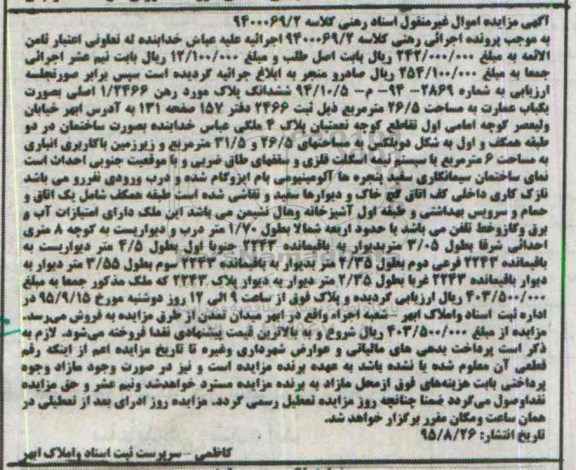 آگهی مزایده اموال غیرمنقول اسناد رهنی کلاسه ۹۴۰۰۰۶۹/۲
به موجب پرونده اجرائی رهنی کلاسه ۹۴۰۰۰۶۹/۲ اجرائیه علیه عباس خدابنده له تعاونی اعتبار ثامن
الائمه به مبلغ ۲۴۲/۰۰۰/۰۰۰ ریال بابت اصل طلب و مبلغ ۱۲/۱۰۰/۰۰۰ ریال بابت نیم عشر اجرائی
جمعا به مبلغ ۲۵۴/۱۰۰/۰۰۰ ریال صادرو منجر به ابلاغ جرائیه گردیده است سپس برابر صورتجلسه
ارزیابی به شماره ۲۸۶۹- ۹۴- م- ۹۴/۱۰/۵ ششدانگ پلاک مورد رهن ۱/۲۴۶۶ اصلی بصورت
یکباب عمارت به مساحت ۲۶/۵ مترمربع ذیل ثبت ۲۴۶۶ دفتر ۱۵۷ صفحه ۱۳۱ به آدرس ابهر خیابان
ولیعصر کوچه امامی اول تقاطع کوچه نعمتیان پلاک ۴ ملکی عباس خدابنده بصورت ساختمان در دو
طبقه همکف و اول به شکل دوبلکس به مساحتهای ۲۶/۵ و ۳۱/۵ مترمربع و زیرزمین باکاربری انباری
به مساحت ۶ مترمربع با سیستم نیمه اسکلت فلزی و سقفهای طاق ضربی و با موقعیت جنوبی احداث است
نمای ساختمان سیمانکاری سفید پنجره ها آلومینیومی بام ایزوگام شده و درب ورودی نفررو می باشد
نازک کاری داخلی کف اتاق گچ خاک و دیوارها سفید و نقاشی شده است طبقه همکف شامل یک اتاق و
حمام و سرویس بهداشتی و طبقه اول آشپزخانه وهال نشیمن می باشد این ملک دارای امتیازات آب و
برق وگازوخط تلفن می باشد با حدود اربعه شمالا بطول ۱/۷۰ متر درب و دیواریست به کوچه ۸ متری
احداثی شرقا بطول ۳/۰۵ متربدیوار به باقیمانده ۲۲۴۳ جنوبا اول بطول ۴/۵ متر دیواریست به
باقیمانده ۲۲۴۳ فرعی دوم بطول ۲/۳۵ متر بدیوار به باقیمانده ۲۲۴۳ سوم بطول ۳/۵۵ متر دیوار به
دیوار باقیمانده ۲۲۴۳ غربا بطول ۲/۳۵ متر بدیوار به دیوار پلاک ۲۲۴۳ که ملک مذکور جمعا به مبلغ
۴۰۳/۵۰۰/۰۰۰ ریال ارزیابی گردیده و پلاک فوق از ساعت ۹ الی ۱۲ روز دوشنبه مورخ ۹۵/۹/۱۵ در
اداره ثبت اسناد واملاک ابهر شعبه اجراء واقع در ابهر میدان تمدن از طرق مزایده به فروش می‌رسد.
مزایده از مبلغ ۴۰۳/۵۰۰/۰۰۰ ریال شروع و به بالاترین قیمت پیشنهادی نقدا فروخته می‌شود. لازم به
ذکر است پرداخت بدهی های مالیاتی و عوارض شهرداری وغیره تا تاریخ مزایده اعم از اینکه رقم
قطعی آن معلوم شده یا نشده باشد به عهده برنده مزایده است و نیز در صورت وجود مازاد وجوه
پرداختی بابت هزینه‌های فوق ازمحل مازاد به برنده مزایده مسترد خواهدشد ونیم عشر و حق مزایده
نقداوصول می‌گردد ضمنا چنانچه روز مزایده تعطیل رسمی گردد، مزایده روز اداری بعد از تعطیلی در
همان ساعت ومکان مقرر برگزار خواهد شد.
تاریخ انتشار: ۹۵/۸/۲۶
کاظمی - سرپرست ثبت اسناد واملاک ابهر